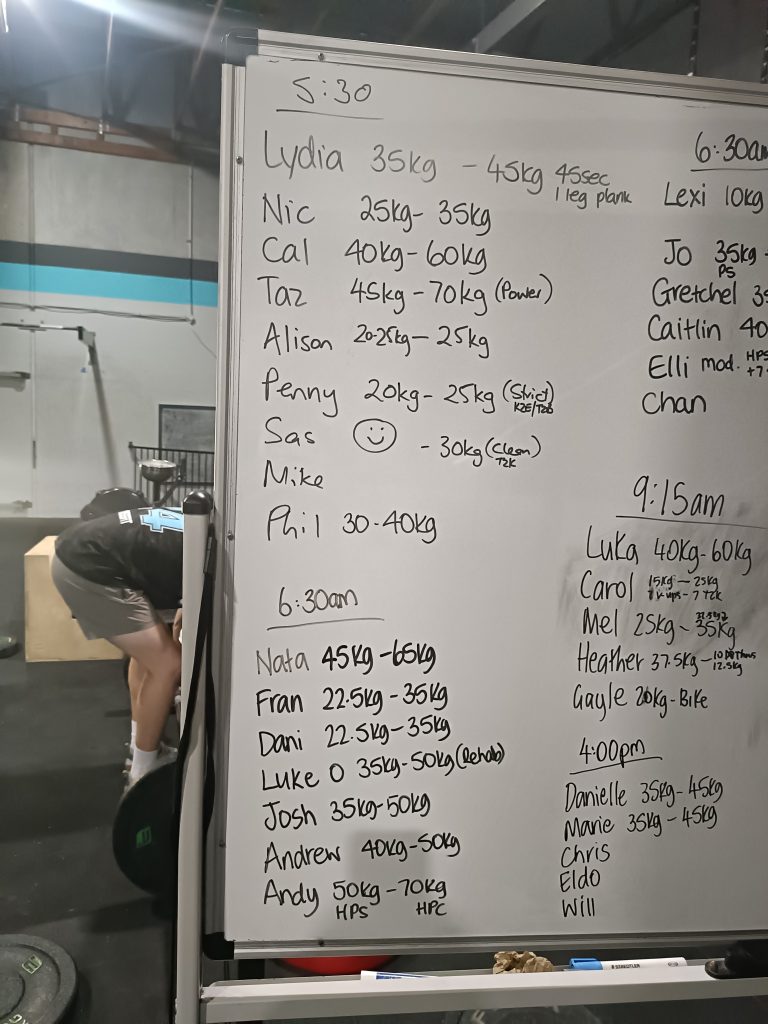 5:30
Lydia 35kg - 45kg 45sec
1 leg plank
Nic 25kg - 35kg
Cal 40kg - 60kg
Taz 45kg - 70kg (Power)
Alison 20-25kg - 25kg
Penny 20kg - 25kg (Strict)
K2E/T2B
Sas - 30kg (Clean)
T2K
Mike
Phil 30-40kg
6:30am
Nata 45kg - 65kg
Fran 22.5kg - 35kg
Dani 22.5kg - 35kg
Luke O 35kg - 50kg (Rehab)
Josh 35kg - 50kg
Andrew 40kg - 50kg
Andy 50kg - 70kg
HPS HPC
6:30am
Lexi 10kg
Jo 35kg -
PS
Gretchel 35
Caitlin 40
Elli mod. HPS
+7
Chan
9:15am
Luka 40kg - 60kg
Carol 15kg - 25kg
- 7 T2K
Mel 25kg - 35kg
Heather 37.5kg -
12.5kg
Gayle 20kg - Bike
4:00pm
Danielle 35kg - 45kg
Marie 35kg - 45kg
Chris
Eldo
Will
STAEDTLER